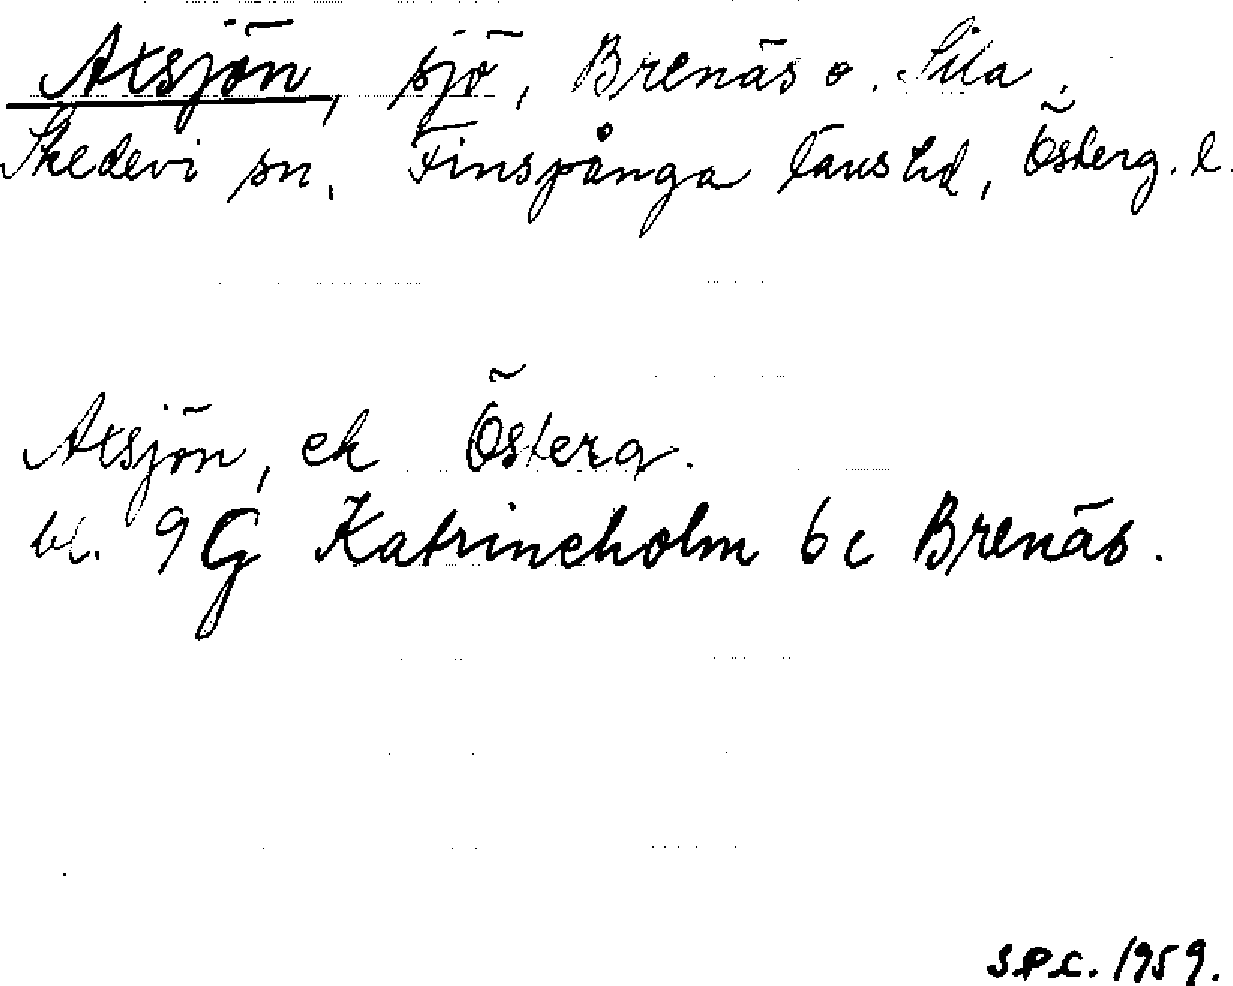 Axsjön, sjö, Brenäs o. Sila,
Skedevi sn, Finspånga läns hd, Österg. l.
Axsjön, ek Österg.
bl. 9G Katrineholm 6c Brenäs.
S.P.C. 1959.